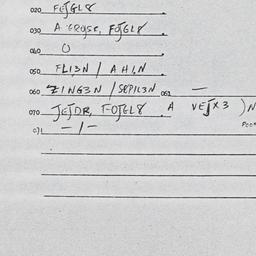 020 FEJGL8
030 A GROSE, FOJGL8
040 O
050 FLI3N / AHI,N
060 ZING3N / SEPIL3N 061 —
070 JEJDR, FOJGL8. A VEJX3 ) N
071 — / —